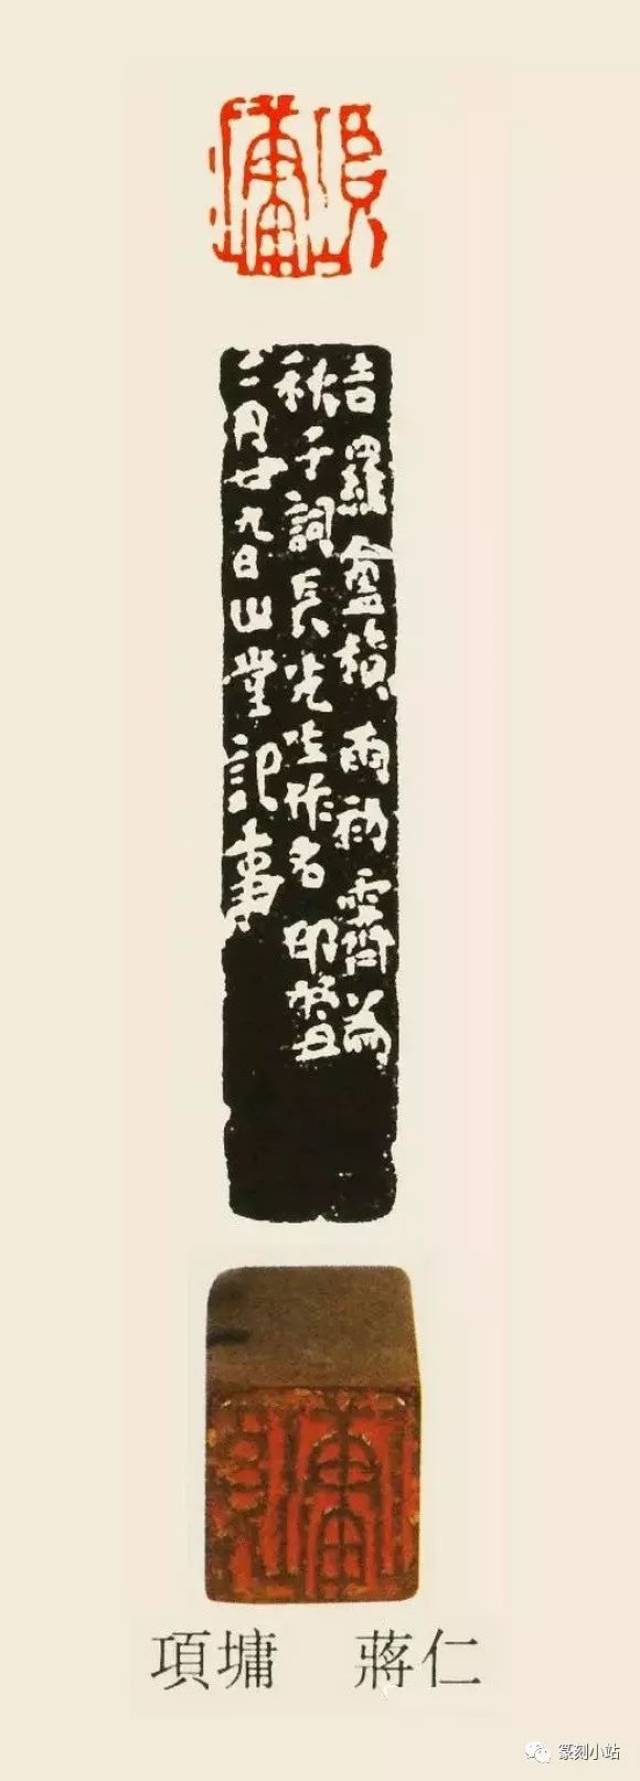 項墉
吉羅盦積雨初霽為
秋子詞長先生作名印
月廿九日山堂記事
項墉 蔣仁
篆刻小站